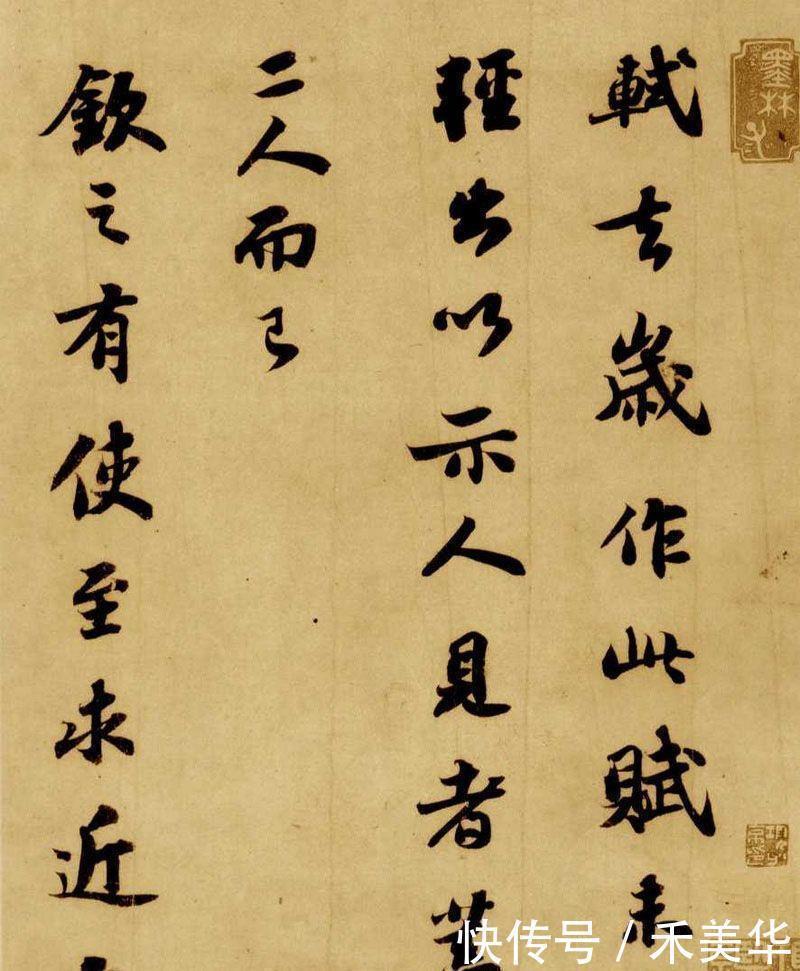 墨林
軾去歲作此賦未
輕出以示人見者蓋
二人而已
欽之有使至求近
快传号 / 禾美华